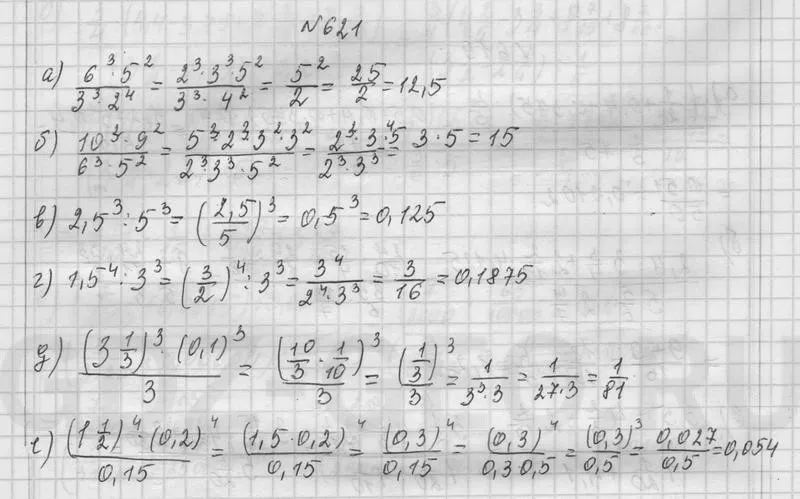 №621
а) (6³·5²)/(3³·2⁴) = (2³·3³·5²)/(3³·4²) = 5²/2 = 25/2 = 12,5
б) (10³·9²)/(6³·5²) = (5³·2³·3²·3²)/(2³·3³·5²) = (2³·3⁴·5)/(2³·3³) = 3·5 = 15
в) 2,5³:5³ = (2,5/5)³ = 0,5³ = 0,125
г) 1,5⁴:3³ = (3/2)⁴:3³ = 3⁴/(2⁴·3³) = 3/16 = 0,1875
д) ((3 1/3)³·(0,1)³)/3 = (10/3·1/10)³/3 = (1/3)³/3 = 1/(3³·3) = 1/(27·3) = 1/81
е) ((1 1/2)⁴·(0,2)⁴)/0,15 = (1,5·0,2)⁴/0,15 = (0,3)⁴/0,15 = (0,3)⁴/(0,3·0,5) = (0,3)³/0,5 = 0,027/0,5 = 0,054